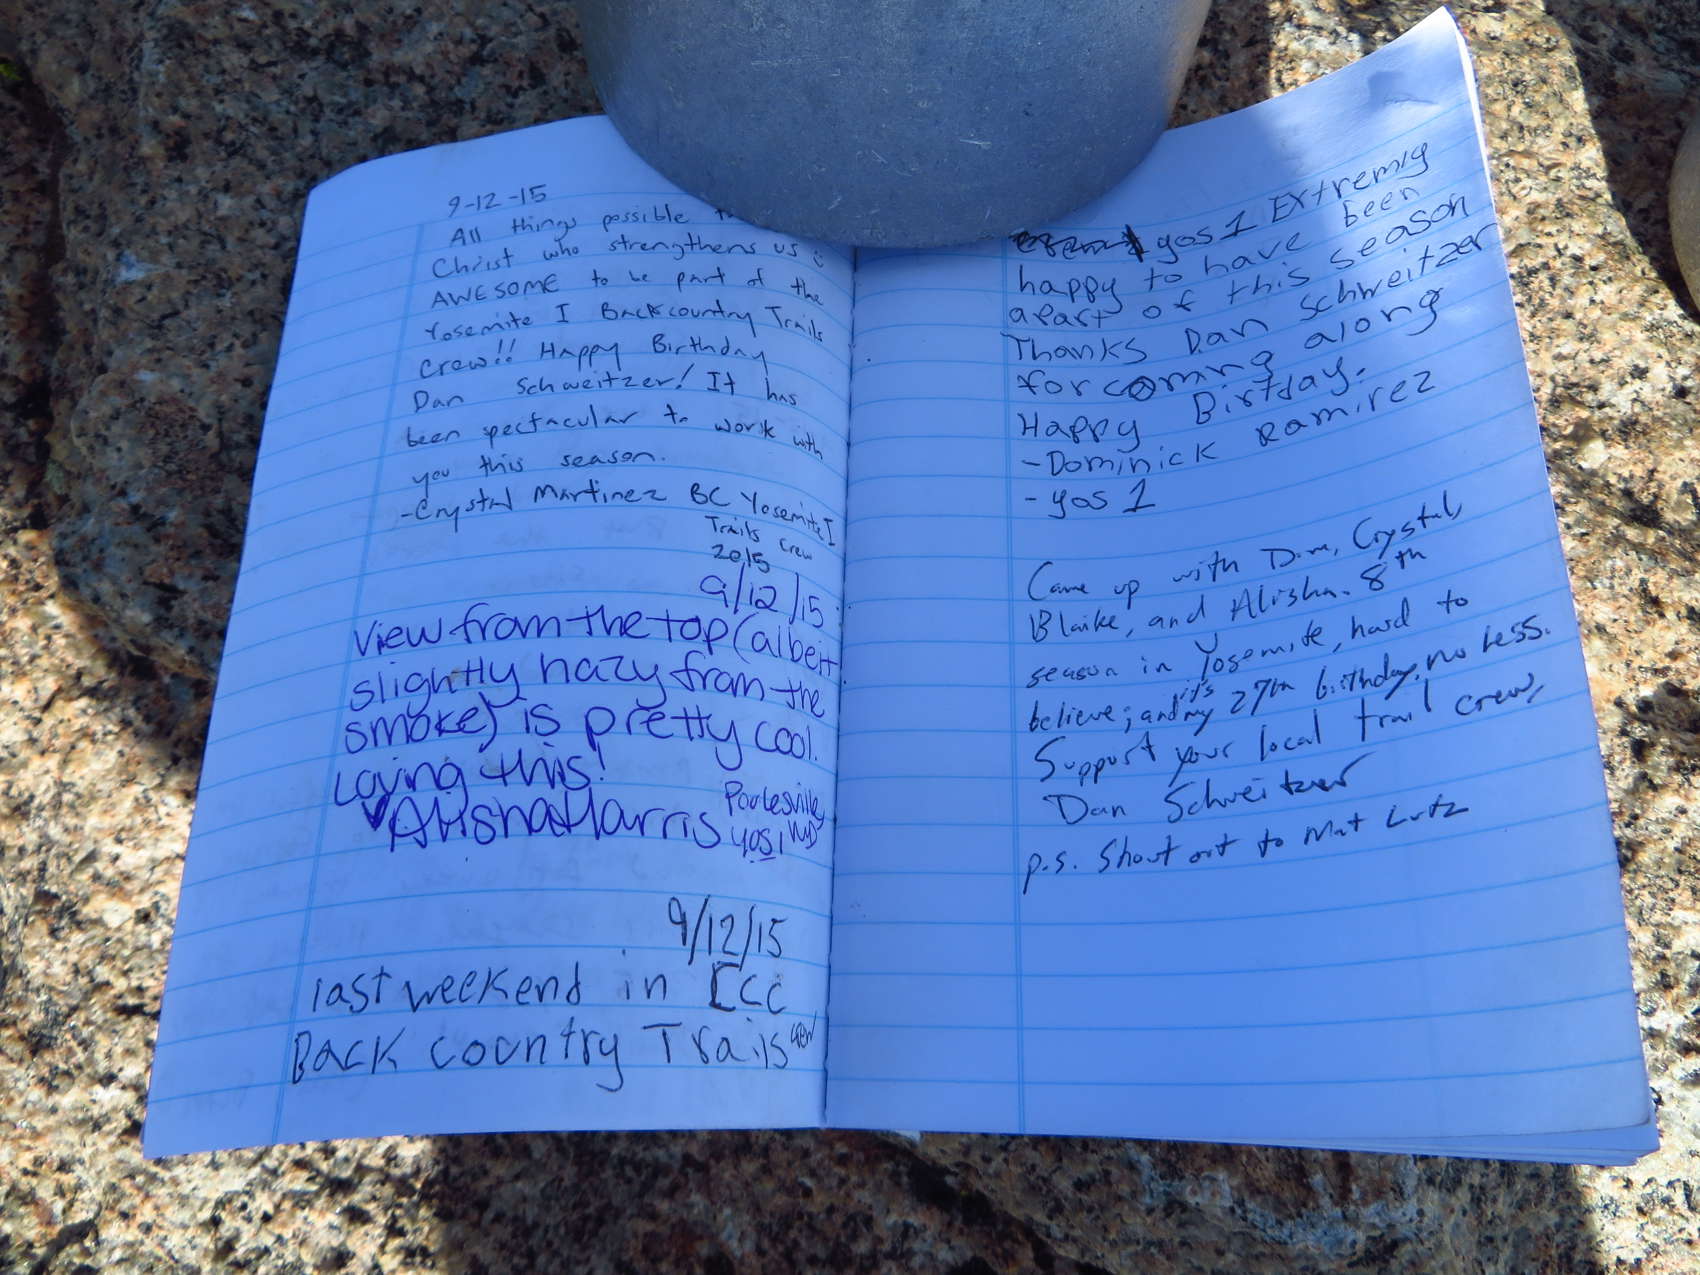 9-12-15
All things possible
Christ who strengthens us
AWESOME to be part of the
Yosemite I Backcountry Trails
crew!! Happy Birthday
Dan Schweitzer! It has
been spectacular to work with
you this season.
-Crystal Martinez BC Yosemite I
Trails Crew
2015
9/12/15
View from the top (albeit
slightly hazy from the
smoke) is pretty cool.
Loving this!
♥Alisha Harris Poolesville, MD
yos1
9/12/15
last weekend in CCC
Back country Trails crew
yos 1 Extremly
happy to have been
apart of this season
Thanks Dan Schweitzer
for coming along
Happy Birtday.
-Dominick Ramirez
-yos 1
Came up with Dom, Crystal,
Blaike, and Alisha. 8th
season in Yosemite, hard to
believe; and it's my 27th birthday, no less.
Support your local trail crew,
Dan Schweitzer
p.s. Shout out to Mat Lutz